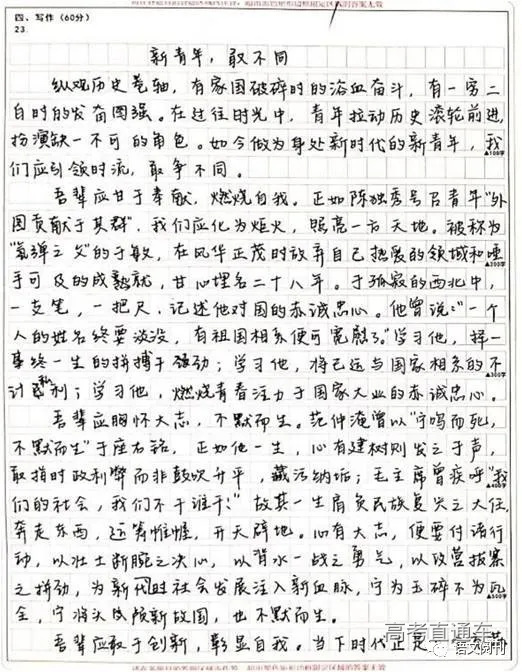 四、写作（60分）
23.
新青年，敢不同
纵观历史卷轴，有家国破碎时的浴血奋斗，有一穷二
白时的发奋图强。在过往时光中，青年拉动历史滚轮前进，
扮演缺一不可的角色。如今做为身处新时代的新青年，我
▲100字
们应引领时流，敢争不同。
吾辈应甘于奉献，燃烧自我。正如陈独秀号召青年“外
图贡献于其群”，我们应化为炬火，照亮一方天地。被称为
“氢弹之父”的于敏，在风华正茂时放弃自己热爱的领域和唾
▲200字
手可及的成就，甘心埋名二十八年。于孤寂的西北中，
一支笔，一把尺，记述他对国的赤诚忠心。他曾说：“一个
人的姓名终要淡没，有祖国相系便可宽慰了。”学习他，择一
事终一生的拼搏干劲；学习他，将己运与国家相系的不
▲300字
计利；学习他，燃烧青春活力于国家大业的赤诚忠心。
吾辈应胸怀大志，不默而生。范仲淹曾以“宁鸣而死，
不默而生”于座右铭，正如他一生，心有建树则发之于声，
敢指时政利弊而非鼓吹升平，藏污纳垢；毛主席曾疾呼“我
们的社会，我们不干谁干！”故其一生肩负民族复兴之大任，
奔走东西，运筹帷幄，开天辟地。心有大志，便要付诸行
动，以壮士断腕之决心，以背水一战之勇气，以攻营拔寨
之拼劲，为新时代社会发展注入新血脉，宁为玉碎不为瓦
▲500字
全，宁将头成殡新故国，也不默而生。
吾辈应敢于创新，彰显自我。当下时代正是
高考直通车